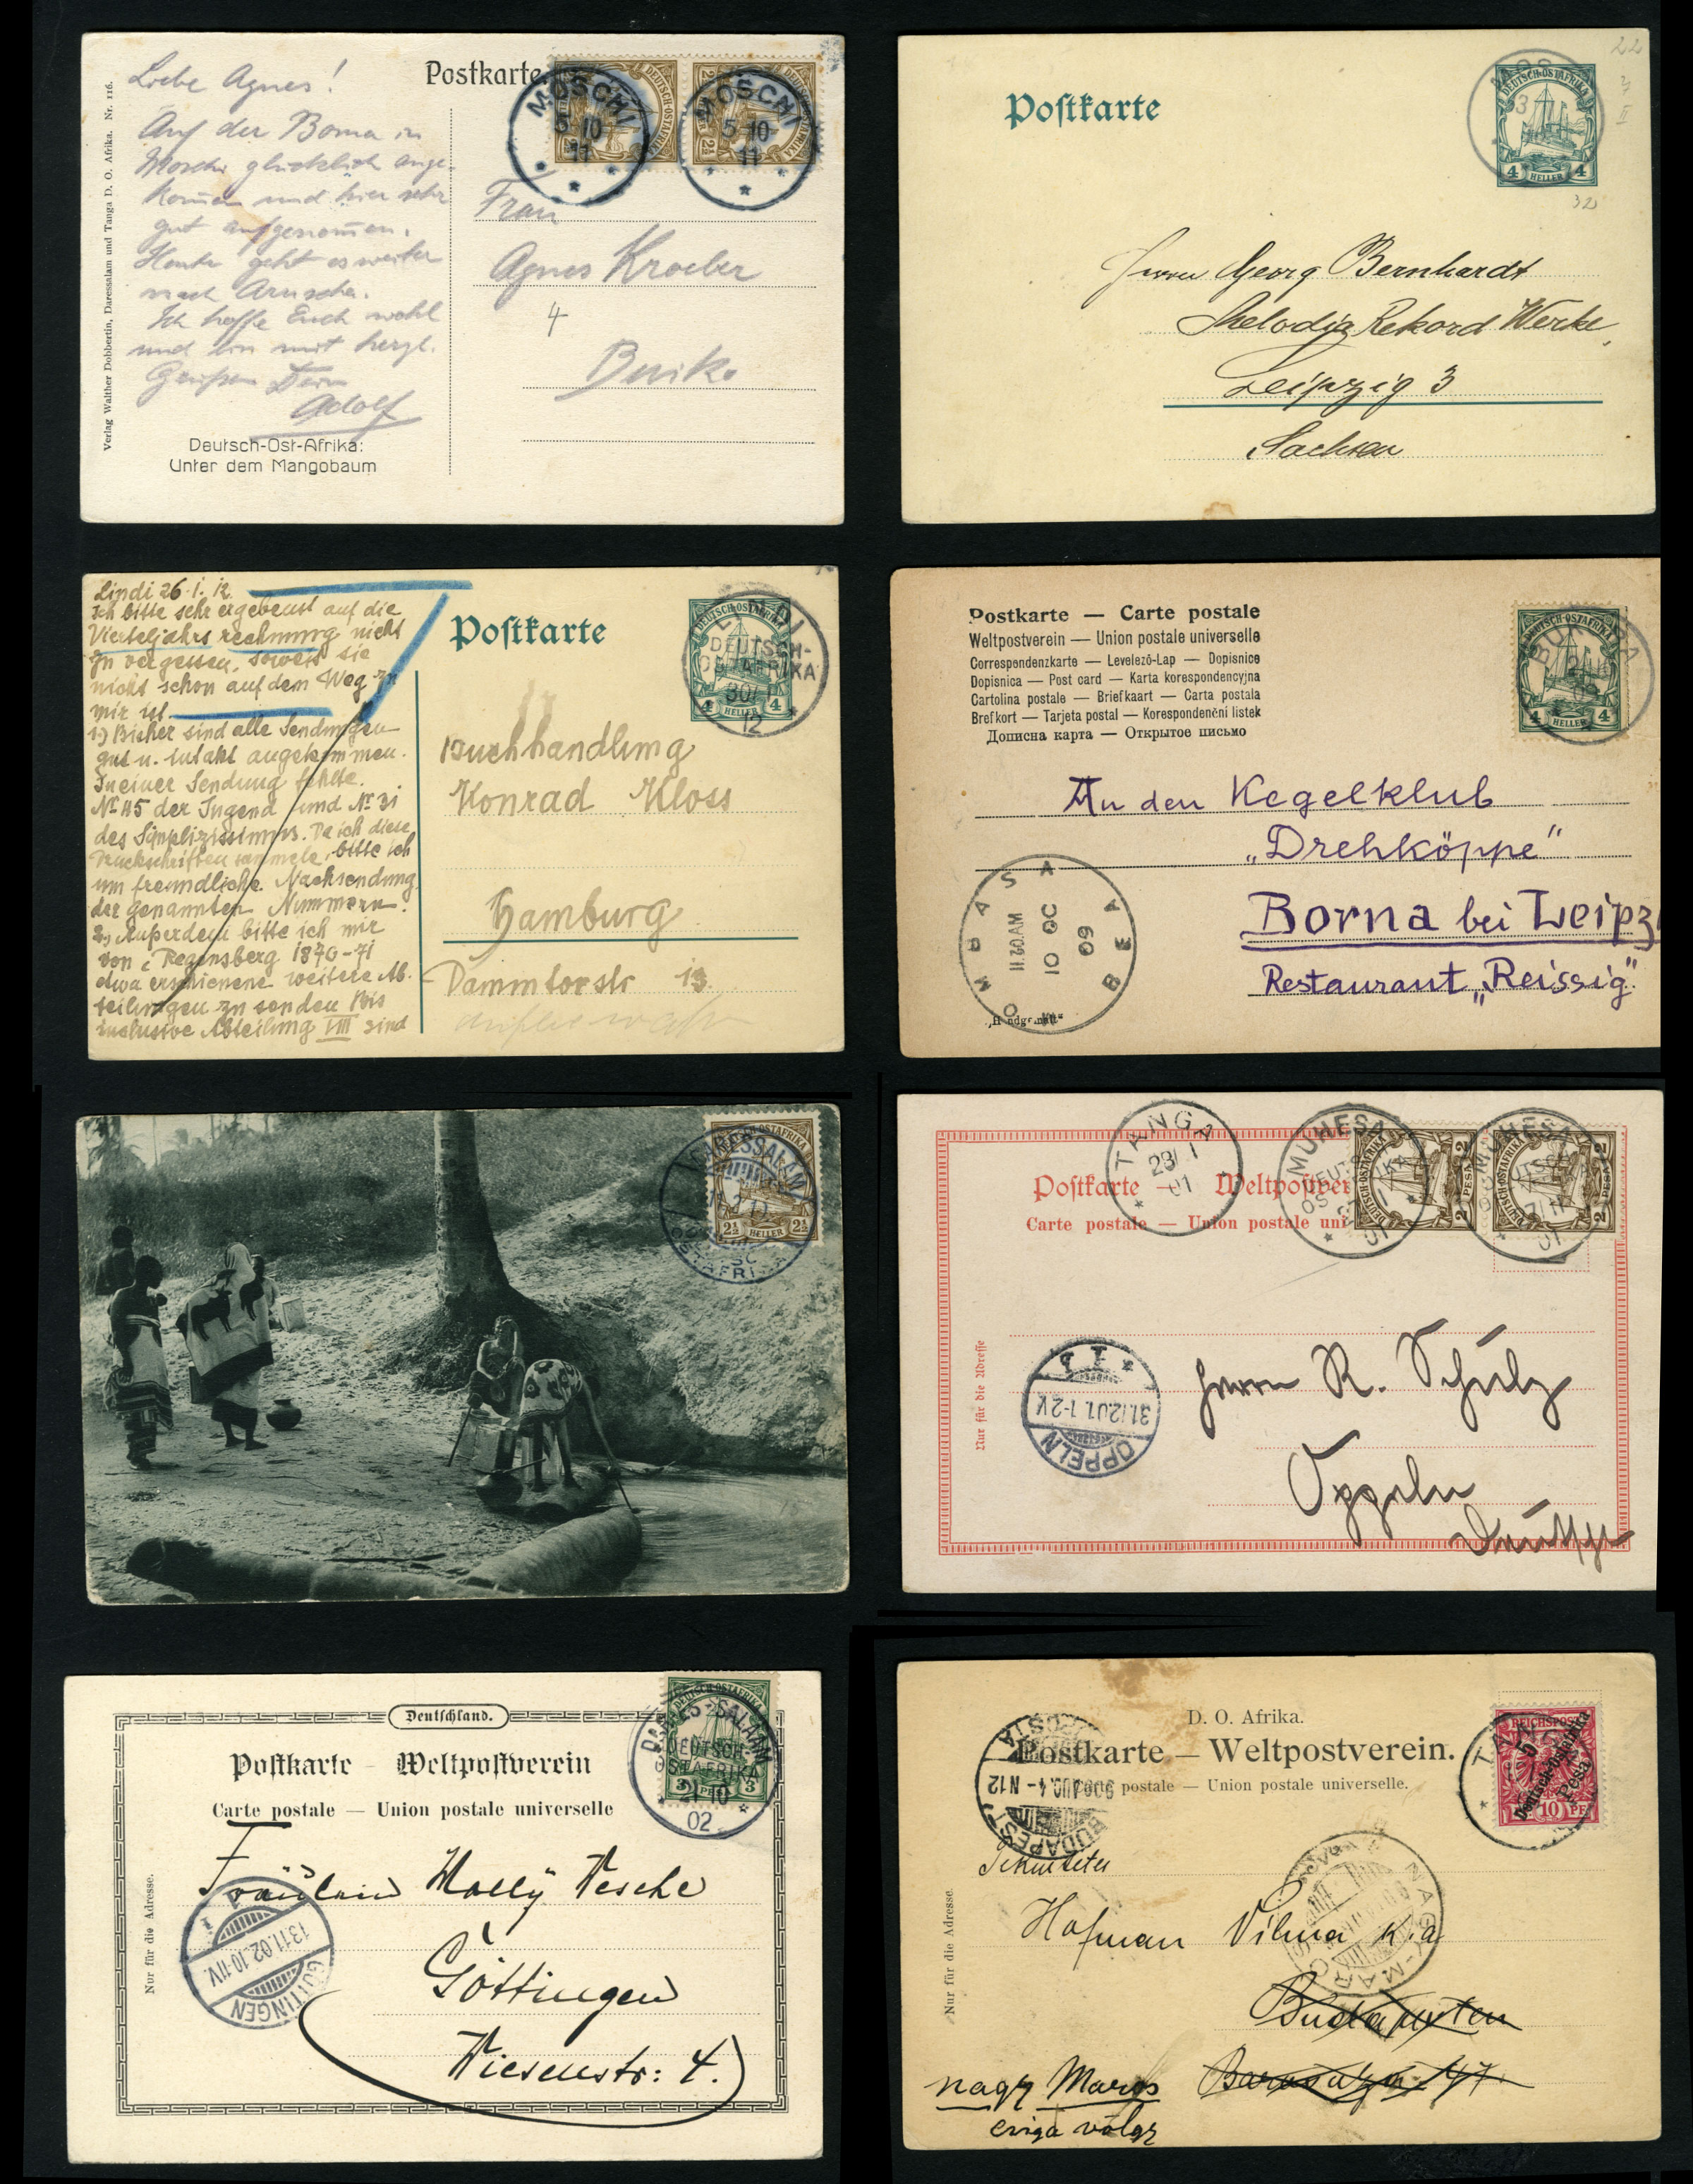 Postkarte
Liebe Agnes!
Auf der Boma in
Moschi glücklich ange-
kom̄en und hier sehr
gut aufgenom̄en.
Heute geht es weiter
nach Aruscha.
Ich hoffe Euch wohl
und bin mit herzl.
Grüßen Dein
Adolf
Deutsch-Ost-Afrika:
Unter dem Mangobaum
Verlag Walther Dobbertin, Daressalam und Tanga D. O. Afrika. Nr. 116.
MOSCHI
5 10
11
MOSCHI
5 10
11
DEUTSCH-OSTAFRIKA
2½
Frau
Agnes Kroeber
4
Buiko
22
Postkarte
DEUTSCH-OSTAFRIKA
4 HELLER 4
32
Herrn Georg Bernhardt
Melodia Rekord Werke,
Leipzig 3
Sachsen
Lindi 26.1.12.
Ich bitte sehr ergebenst auf die
Vierteljahrs rechnung nicht
zu vergessen, soweit sie
nicht schon auf dem Weg zu
mir ist.
1) Bisher sind alle Sendungen
gut u. intakt angekommen.
In einer Sendung fehlte
No 45 der Jugend und No 31
des Simplizissimus. Da ich diese
Druckschriften sammele, bitte ich
um freundliche Nachsendung
der genannten Nummern.
2) Außerdem bitte ich mir
von Regensberg 1870-71
etwa erschienene weitere Ab-
teilungen zu senden. Bis
inclusive Abteilung VIII sind
Postkarte
DEUTSCH-OSTAFRIKA
4 HELLER 4
LINDI
DEUTSCH-
OSTAFRIKA
30/1
12
Buchhandlung
Konrad Kloss
Hamburg
Dammtorstr 13.
Postkarte — Carte postale
Weltpostverein — Union postale universelle
Correspondenzkarte — Levelező-Lap — Dopisnice
Dopisnica — Post card — Karta korespondencyjna
Cartolina postale — Briefkaart — Carta postala
Brefkort — Tarjeta postal — Korespondenční listek
Дописна карта — Открытое письмо
DEUTSCH-OSTAFRIKA
4 HELLER 4
An den Kegelklub
„Drehköppe"
Borna bei Leipz
Restaurant „Reissig"
MOMBASA
11.20AM
10 OC
09
DARESSALAM
DEUTSCH-OSTAFRIKA
2½ HELLER 2½
TANGA
23/1
01
MUHESA
DEUTSCH-OSTAFRIKA
2 PESA 2
MUHESA
01
Postkarte — Weltpostver
Carte postale — Union postale uni
Nur für die Adresse
OPPELN
Herrn R. Schulz
Oppeln
Deutschland.
Postkarte – Weltpostverein
Carte postale — Union postale universelle
DAR-ES-SALAAM
DEUTSCH-
OSTAFRIKA
21 10
02
3 PESA 3
Nur für die Adresse.
Fräulein Molly Wesche
Göttingen
Wiesenstr: 4.
GÖTTINGEN
13.11.02.10-11V.
D. O. Afrika.
Postkarte — Weltpostverein.
postale — Union postale universelle.
REICHSPOST
5
Deutsch-Ostafrika
Pesa
10
BUDAPEST
906 AUG. 4 - N12
Nur für die Adresse.
Hofman Vilma k. a.
NAGY-MAROS
Budapesten
nagy Maros